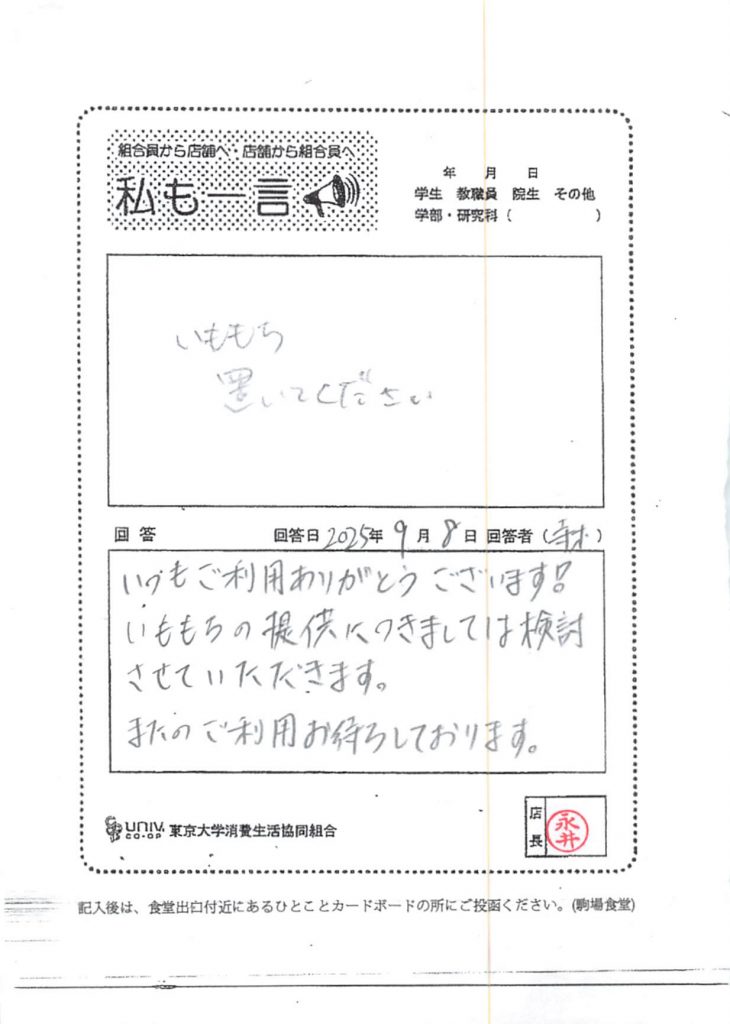 組合員から店舗へ 店舗から組合員へ
私も一言
年 月 日
学生 教職員 院生 その他
学部・研究科( )
いももち
置いてください
回答 回答日 2025年 9月 8日 回答者( )
いつもご利用ありがとうございます!
いももちの提供につきましては検討
させていただきます。
またのご利用お待ちしております。
UNIV. CO-OP 東京大学消費生活協同組合
店長 永井
記入後は、食堂出口付近にあるひとことカードボードの所にご投函ください。(駒場食堂)